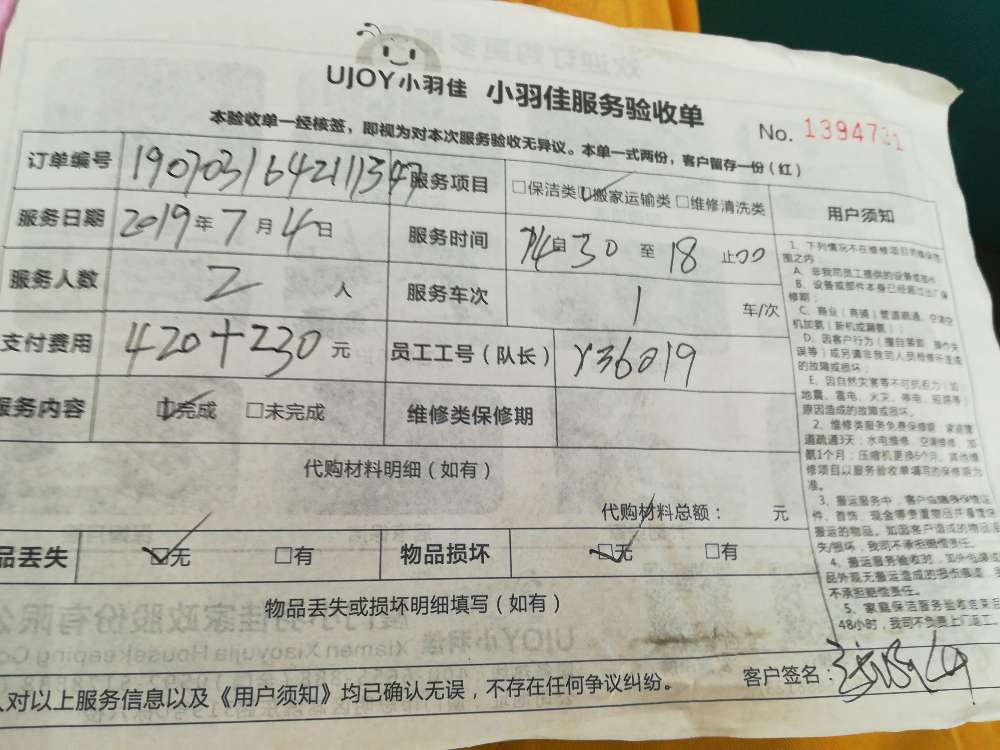 UJOY小羽佳 小羽佳服务验收单
No. 1394731
本验收单一经核签，即视为对本次服务验收无异议。本单一式两份，客户留存一份（红）
订单编号 190703164211347 服务项目 □保洁类 ☑搬家运输类 □维修清洗类
服务日期 2019年7月4日 服务时间 14自30至18止00
服务人数 2人 服务车次 1车/次
支付费用 420+230元 员工工号（队长） Y36019
服务内容 ☑完成 □未完成 维修类保修期
代购材料明细（如有）
代购材料总额： 元
品丢失 ☑无 □有 物品损坏 ☑无 □有
物品丢失或损坏明细填写（如有）
人对以上服务信息以及《用户须知》均已确认无误，不存在任何争议纠纷。
客户签名：
用户须知
1、下列情况不在维修项目的维保范
围之内：
A、非我司员工提供的设备或部件
B、设备或部件本身已经超过出厂保
修期；
C、商业（商铺）管道疏通，空调空
机加氨（新机或漏氨）；
D、因客户行为（擅自装卸、操作失
误等）或另请非我司人员检修所造成
的故障或损坏；
E、因自然灾害等不可抗力（如
地震、雷电、火灾、停电、短路等）
原因造成的故障或损坏。
2、维修类服务免费保修期：家庭管
道疏通3天；水电维修、空调维修、加
氨1个月；压缩机更换6个月。其他维
修项目以服务验收单填写的保修期为
准。
3、搬运服务中，客户应随身保管证
件、首饰、现金等贵重物品并看管保
搬运的物品。如因客户造成的物品丢
失/损坏，我司不承担赔偿责任。
4、搬运服务验收时，如外包装或
品外观无搬运造成的损伤痕迹，我
不承担赔偿责任。
5、家庭保洁服务验收结束后
48小时，我司不负责上门返工。